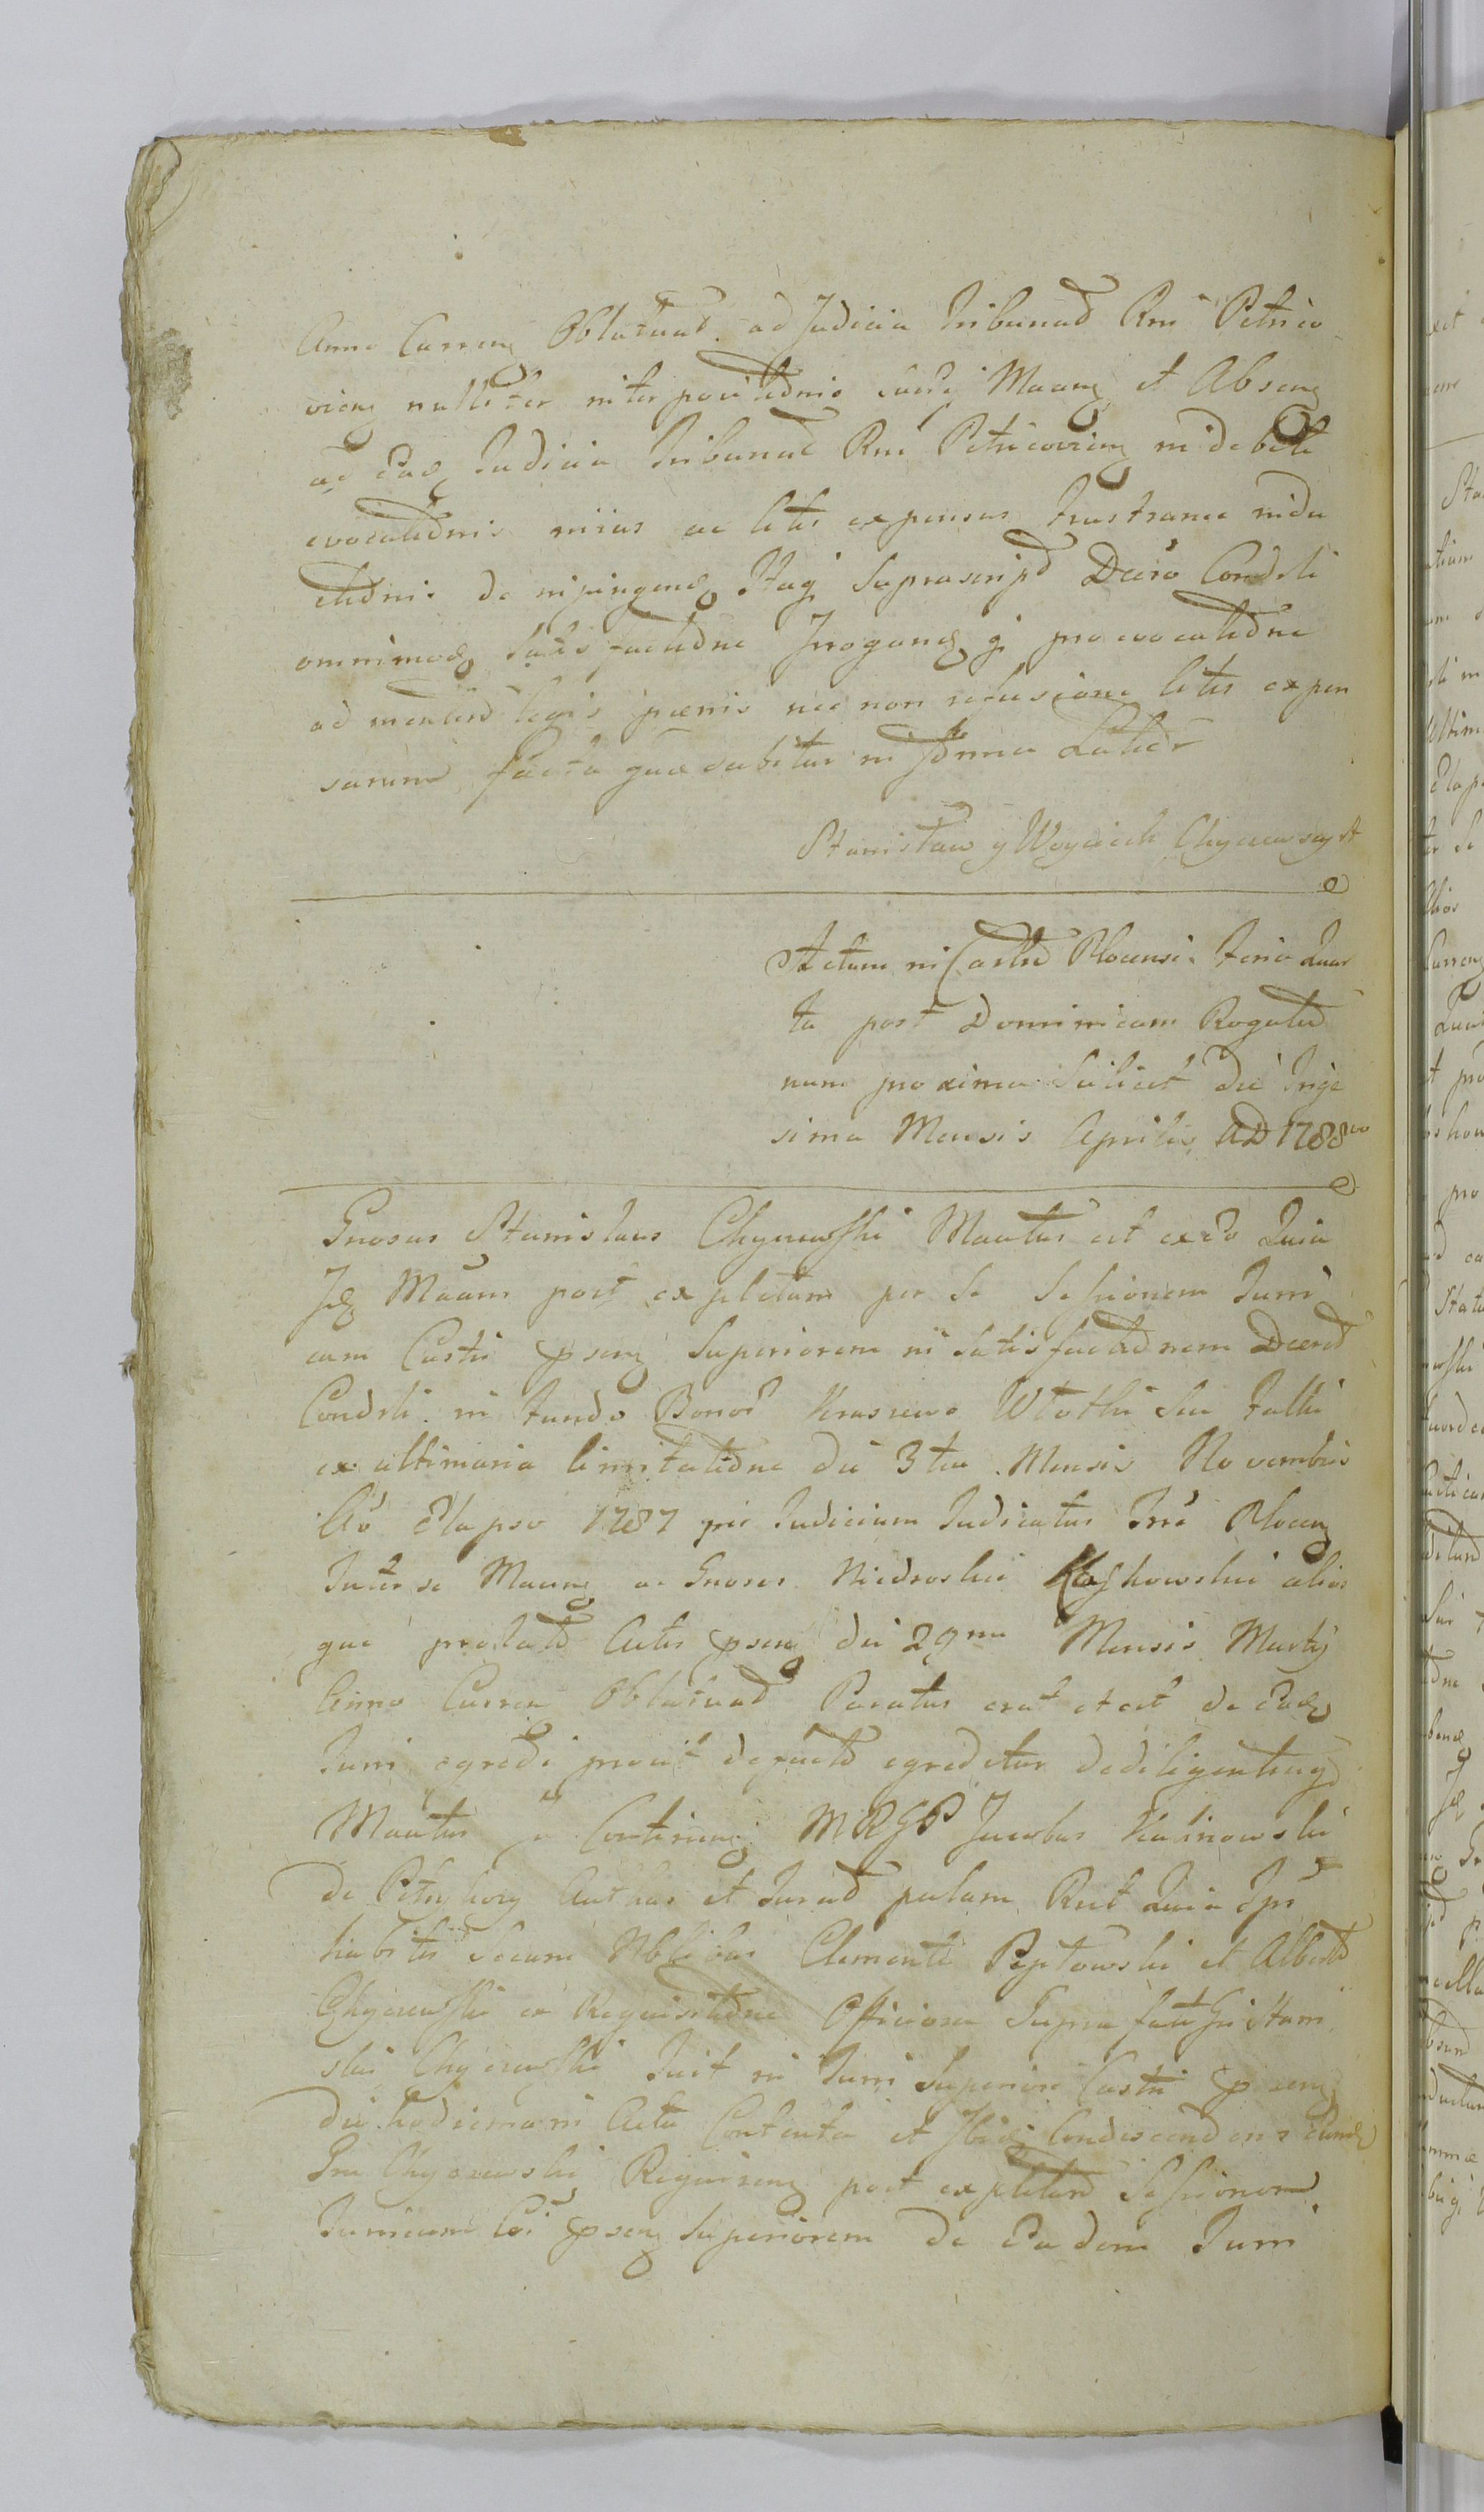 Anno Curren Oblatuas. ad Judicia Tribunal Rni Petrico
vien nulliter interpositionis suæq Maans et Absens
ad Eadz Judicia Tribunal Rni Petricovien indebite
evocationis niias ac litis expensas frustranea indu
ctionis de injungend Itaqz suprascript Decro Condsli
omnimod satisfactione Irogand qz pro evocatione
ad mentem legis pænis nec non refusione litis expen
sarum facta quæ dabitur in forma Latior
Stanisław y Woyciech Chyczewscy
Actum in Castro Plocensi feria Quar
ta post Dominicam Rogatio
num proxima scilicet die Trige
sima Mensis Aprilis AD 1788vo
Gnosus Stanislaus Chyczewski Maatus est ex Eo Quia
Jdz Maans post expletam per se Sessionem Turri
cam Castri psens Superiorem in Satisfactionem Decreti
Condsli in fundo Bonor Kraszewo Wtotki seu Falki
ex ultimaria limitatione die 3tia Mensis Novembris
Ao Elapso 1787 per Judicium Judicatus Trræ Plocen
Inter se Maans ac Gnosos Niedroski alios
que prolato Actis psens die 29na Mensis Martij
Anno Curren Oblatuat Paratus erat et est de Eadz
Turri egredi prout defacto egreditur de diligentiaqz
Maatus in Continenti MRGP Jacobus Kalinowski
de Petrykozy Authus et Jurat palam Rcit Quia Ipse
habitis secum Nblibus Clemente Peptowski et Alberto
Chyczewski ex Requisitione Officiosa Suprafati Gsi Stani
slai Chyczewski fuit in Turri Superiori Castri psens
die hodierna in Actu Contenta et Ibidz Condescendens eund
Gsu Chyczewski Requirens post expletam Sessionem
Turricam Cri psens Superiorem de Eadem Turri